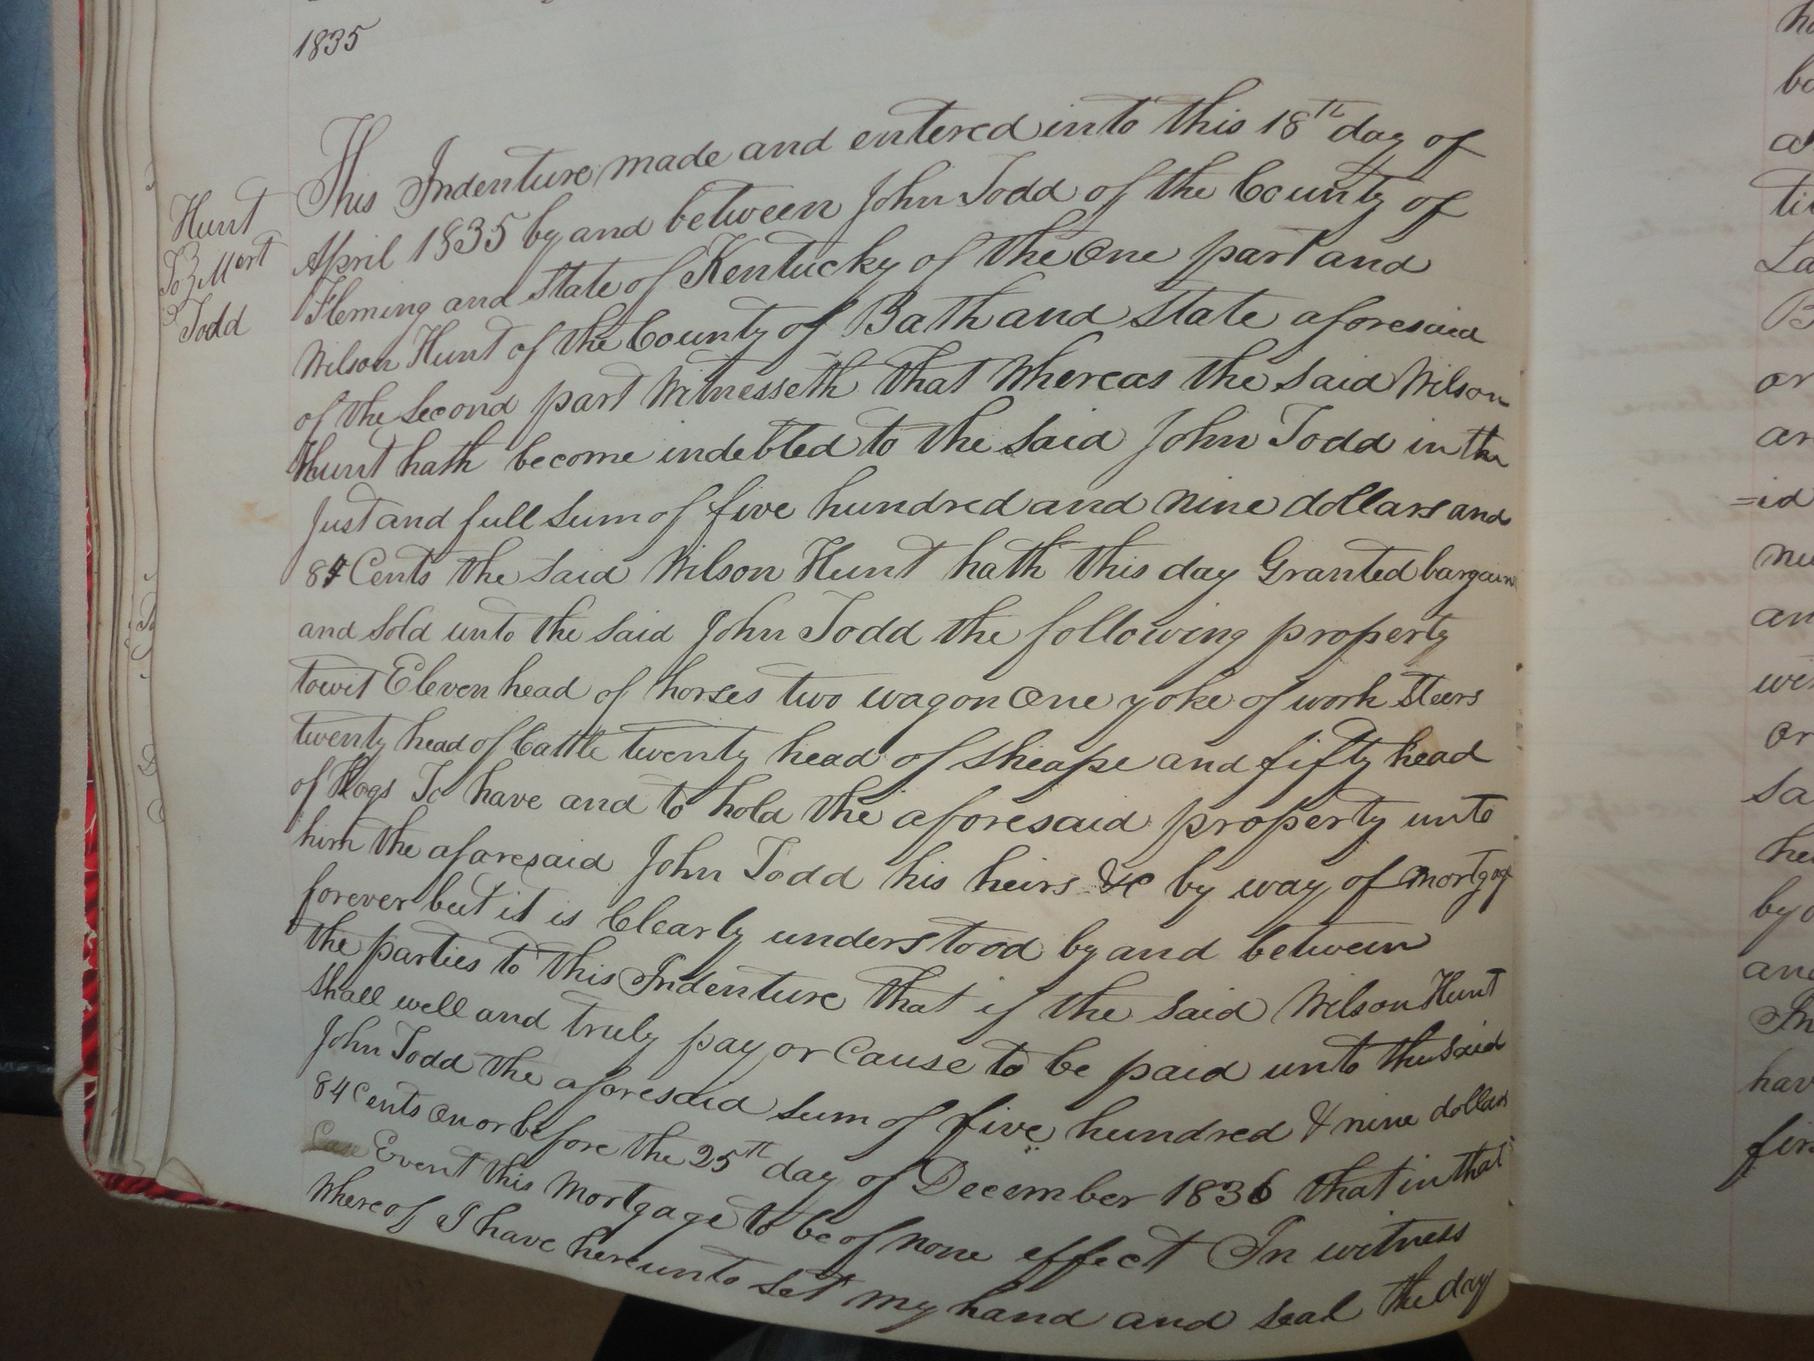 1835
Hunt
To } Mort
Todd
This Indenture made and entered into this 18th day of
April 1835 by and between John Todd of the County of
Fleming and State of Kentucky of the One part and
Wilson Hunt of the County of Bath and State aforesaid
of the Second part Witnesseth that Whereas the said Wilson
Hunt hath become indebted to the said John Todd in the
Just and full Sum of five hundred and nine dollars and
84 Cents the said Wilson Hunt hath this day Granted bargain
and Sold unto the said John Todd the following property
towit Eleven head of horses two wagon One yoke of work Steers
twenty head of Cattle twenty head of Sheape and fifty head
of Hogs To have and to hold the aforesaid property unto
him the aforesaid John Todd his heirs &c by way of mortgag
forever but it is Clearly understood by and between
the parties to this Indenture that if the said Wilson Hunt
Shall well and truly pay or Cause to be paid unto the said
John Todd the aforesaid Sum of five hundred & nine dollars
84 Cents On or before the 25th day of December 1836 that in that
Case Event this Mortgage to be of none effect In witness
Whereof I have hereunto set my hand and seal the day
ho
be
a
ti
La
B
or
ar
=id
nu
an
we
or
Sa
he
by
and
In
hav
firs